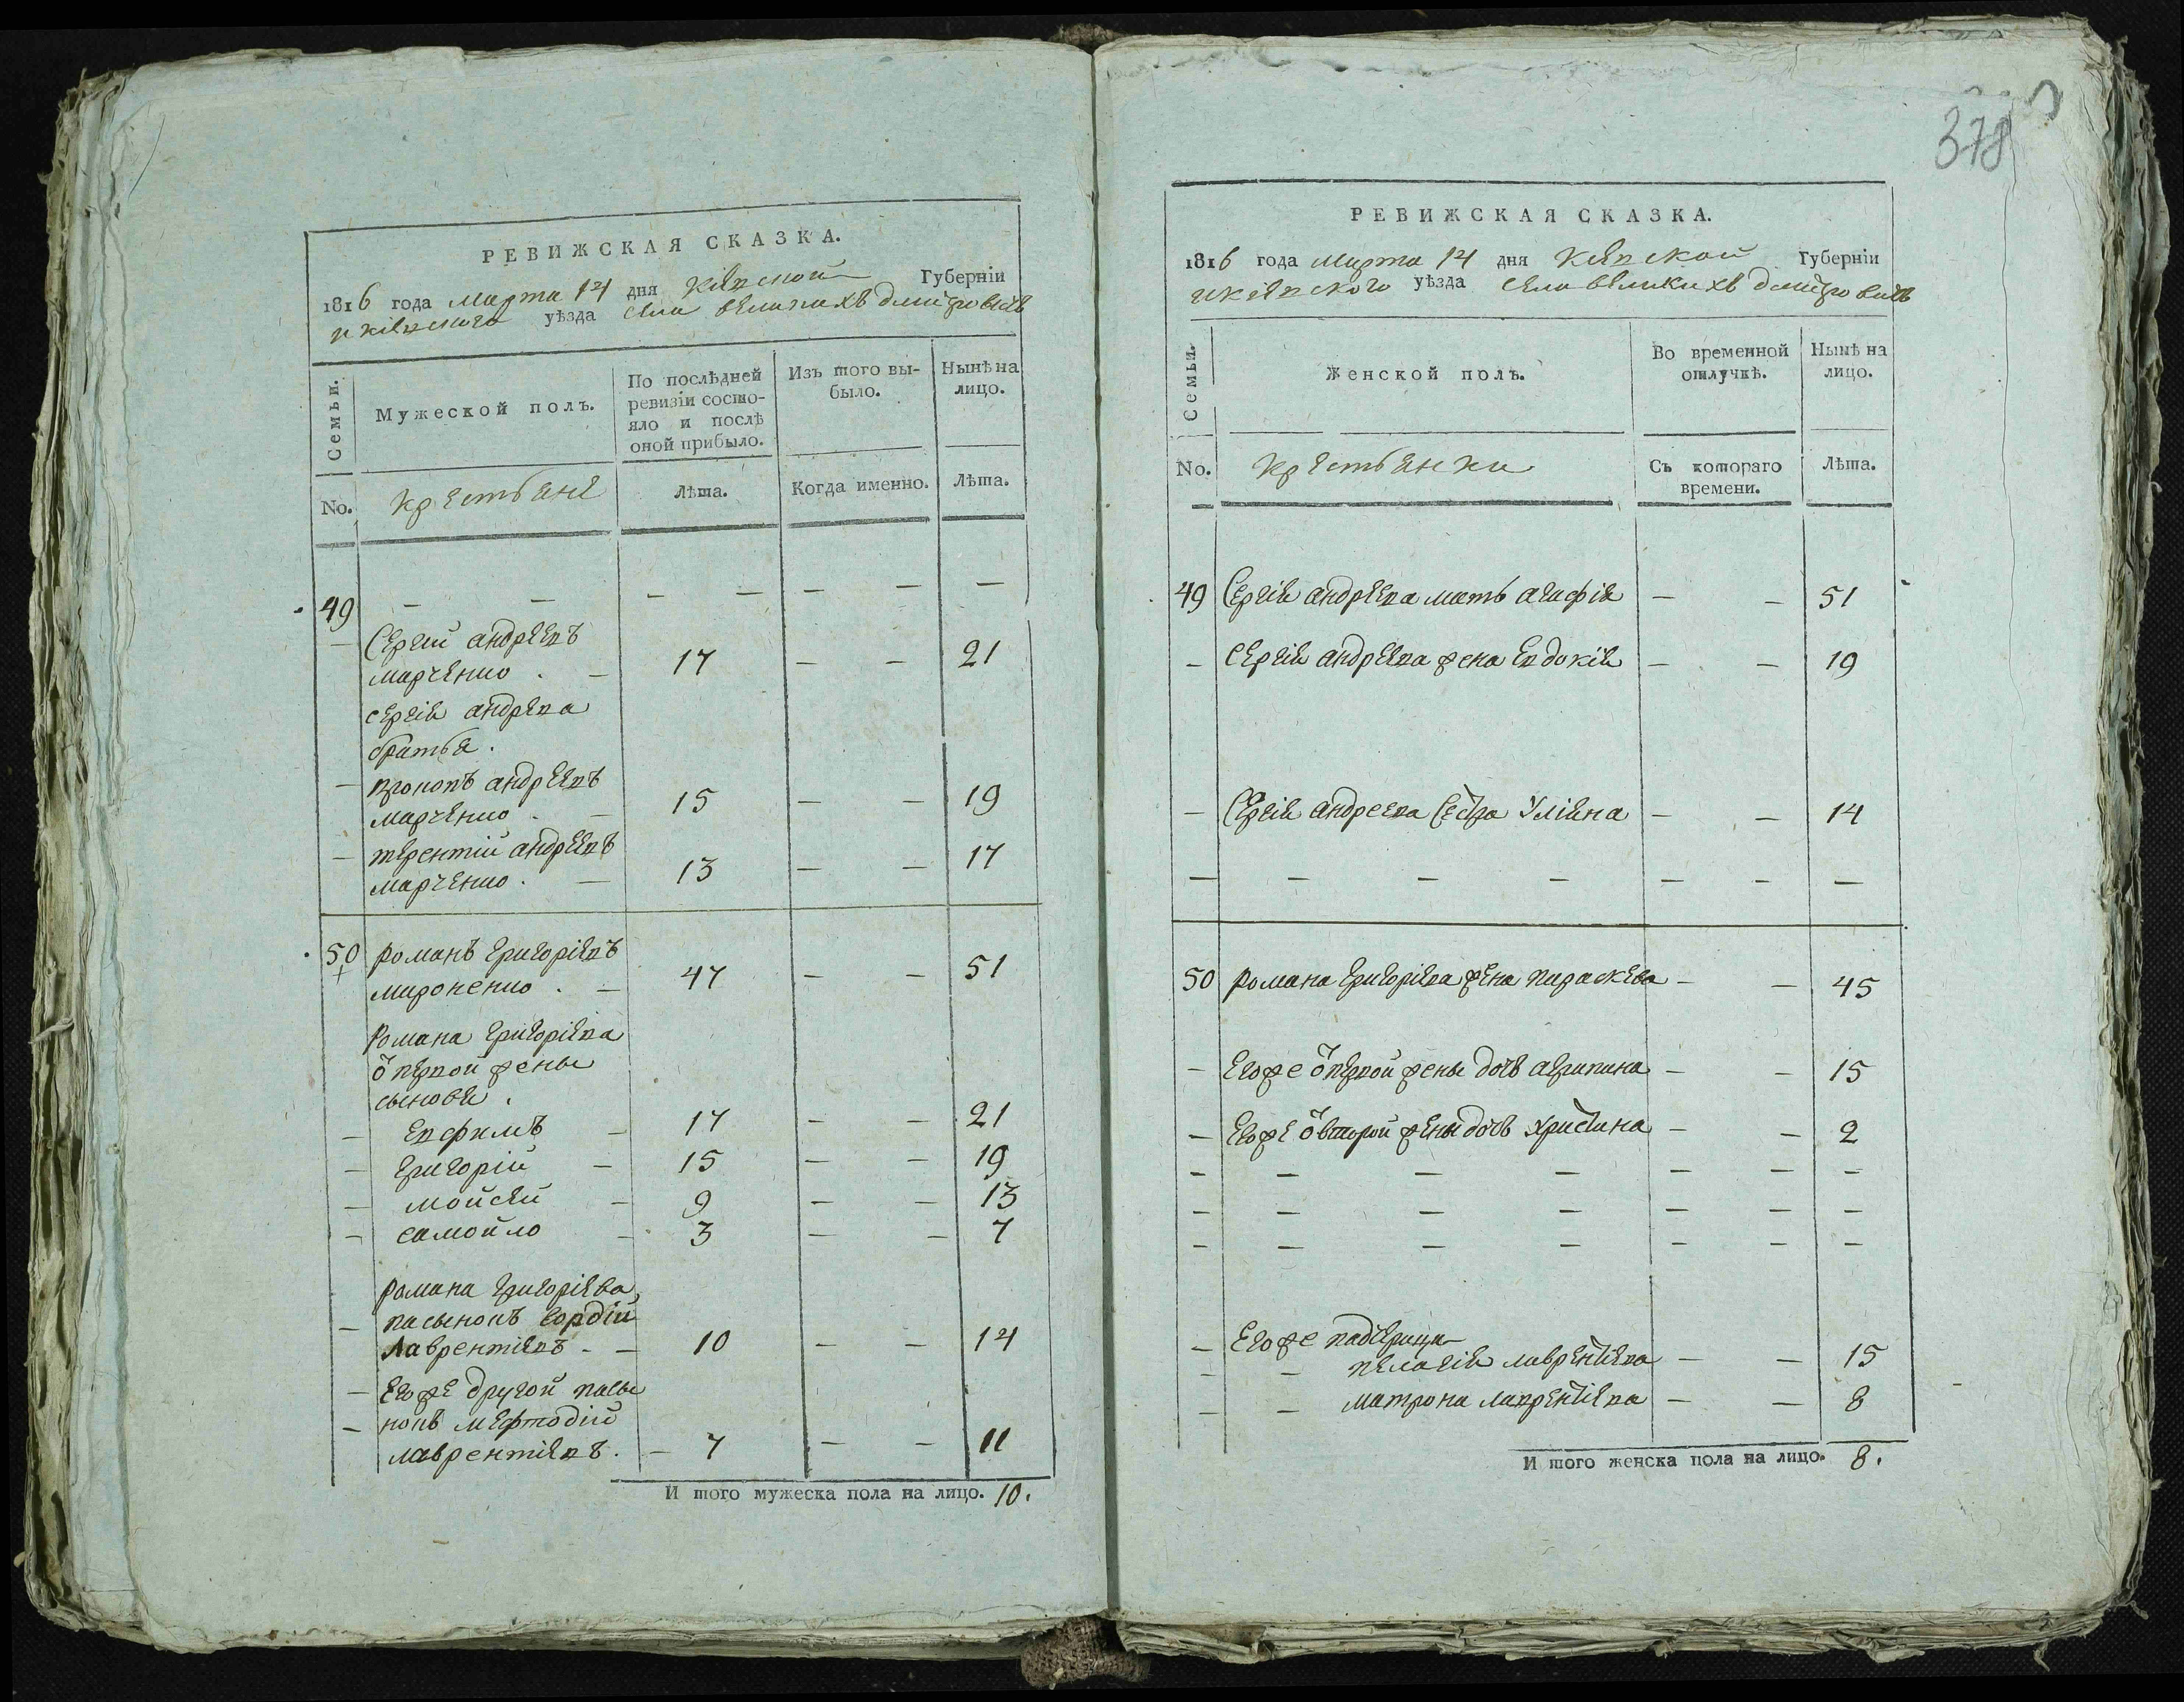 378
РЕВИЖСКАЯ СКАЗКА.
1816 года марта 14 дня Кіевской Губерніи
и кіевского уѣзда села великихъ дмитровичъ
Семьи.
Мужеской полъ.
По послѣдней ревизіи состояло и послѣ оной прибыло.
Изъ того выбыло.
Нынѣ на лицо.
No.
крестьяне
Лѣта.
Когда именно.
Лѣта.
49 — — — — — — —
— Сергій андреевъ
марченко . — 17 — — 21
сергія андреева
братья .
— прокопъ андреевъ
марченко . — 15 — — 19
— терентій андреевъ
марченко . — 13 — — 17
50 романъ григоріевъ
мироненко . — 47 — — 51
романа григоріева
ѿ первой жены
сыновья .
— евфимъ — 17 — — 21
— григорій — 15 — — 19
— мойсей — 9 — — 13
— самойло — 3 — — 7
романа григоріева
— пасынокъ гордій
лаврентіевъ - — 10 — — 14
— его же другой пасы
— нокъ мефтодій
лаврентіевъ . — 7 — — 11
И того мужеска пола на лицо. 10.
РЕВИЖСКАЯ СКАЗКА.
1816 года марта 14 дня Кіевской Губерніи
и кіевского уѣзда села великихъ дмитровичъ
Семьи.
Женской полъ.
Во временной отлучкѣ.
Нынѣ на лицо.
No.
крестьянки
Съ котораго времени.
Лѣта.
49 Сергія андреева мать агафія — — 51
— сергія андреева жена евдокія — — 19
— Сергія андреева сестра Уліяна — — 14
— — — — — — —
50 романа григоріева жена параскева — — 45
— его же ѿ первой жены дочь агрипина — — 15
— его же ѿ второй жены дочь христина — — 2
— — — — — — —
— — — — — — —
— — — — — — —
— его же падчерицы
— — пелагія лаврентіева — — 15
— — матрона лаврентіева — — 8
И того женска пола на лицо. 8.